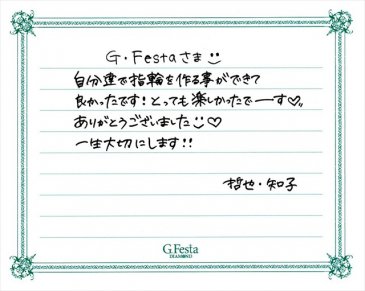 G・Festaさま
自分達で指輪を作る事ができて
良かったです!とっても楽しかったでーす♡。
ありがとうございました♡
一生大切にします!!
哲也・知子
G.Festa
DIAMOND